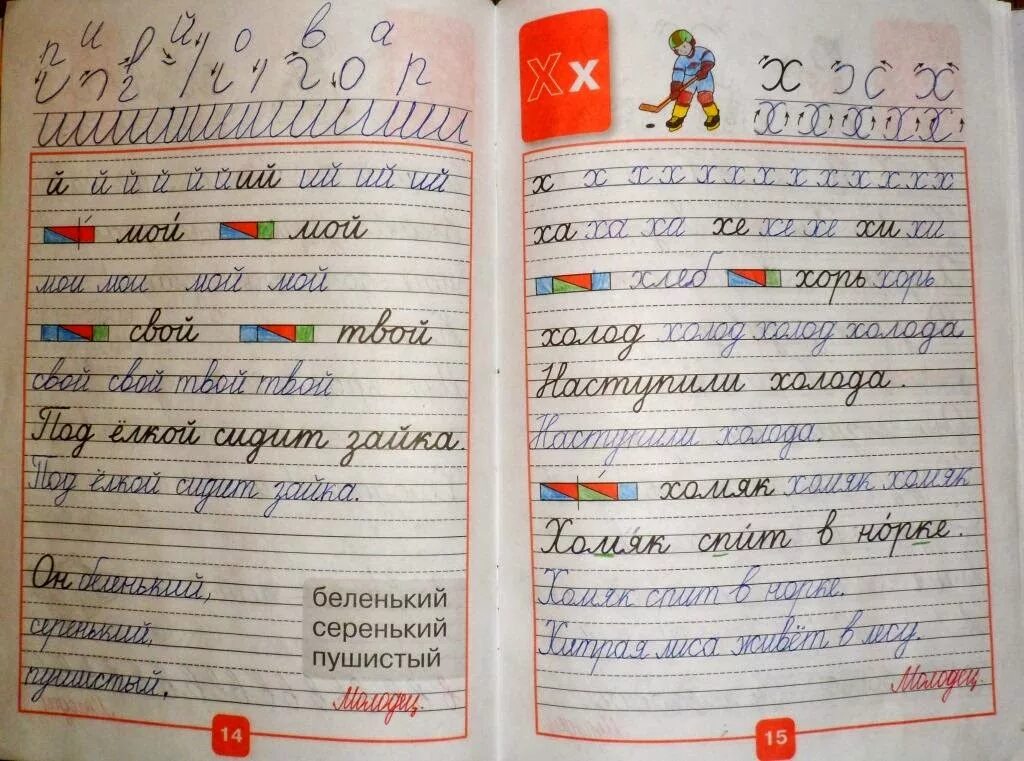 й й й й й й ий ий ий ий
мои мой
мои мои мой мой
свой твой
свой свой твой твой
Под ёлкой сидит зайка.
Под ёлкой сидит зайка.
Он беленький,
серенький,
пушистый.
беленький
серенький
пушистый
Молодец.
14
Х х
х х х х х х х х х х х х х
ха ха ха хе хе хе хи хи
хлеб хорь хорь
холод холод холод холода
Наступили холода.
Наступили холода.
хомяк хомяк хомяк
Хомя́к спи́т в но́рке.
Хомяк спит в норке.
Хитрая лиса живёт в лесу.
Молодец.
15